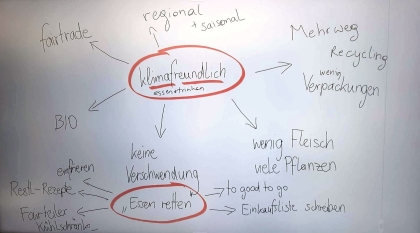 regional
+ saisonal
fairtrade
klimafreundlich
essen + trinken
Mehrweg
Recycling
wenig
Verpackungen
BIO
keine
Verschwendung
wenig Fleisch
viele Pflanzen
einfrieren
Restl-Rezepte
Fairteiler
Kühlschränke
"Essen retten
to good to go
Einkaufsliste schreiben